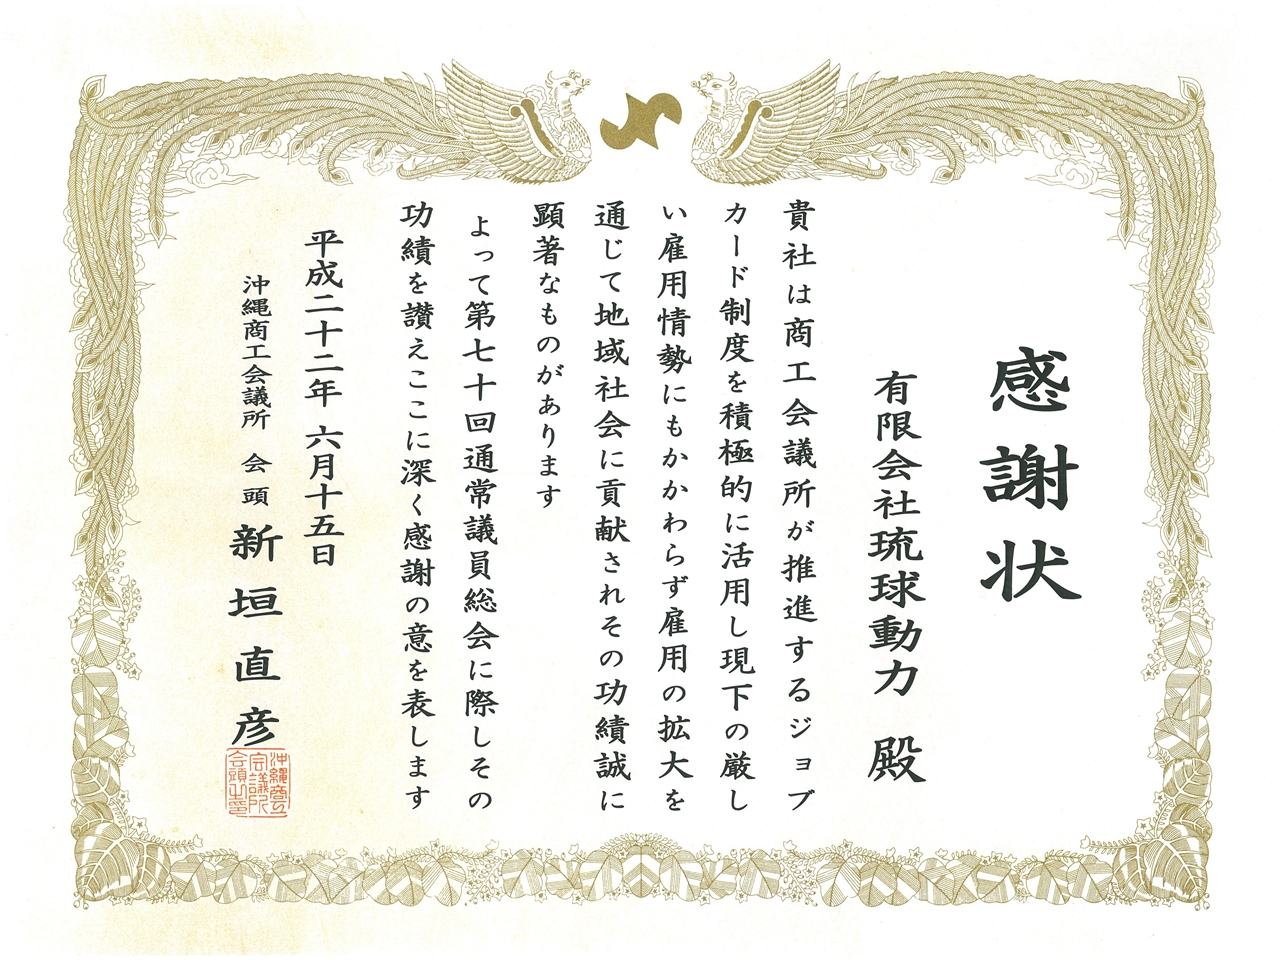 感謝状
有限会社琉球動力 殿
貴社は商工会議所が推進するジョブ
カード制度を積極的に活用し現下の厳し
い雇用情勢にもかかわらず雇用の拡大を
通じて地域社会に貢献されその功績誠に
顕著なものがあります
よって第七十回通常議員総会に際しその
功績を讃えここに深く感謝の意を表します
平成二十二年 六月十五日
沖縄商工会議所 会頭 新垣直彦
沖縄商工
会議所
会頭之印